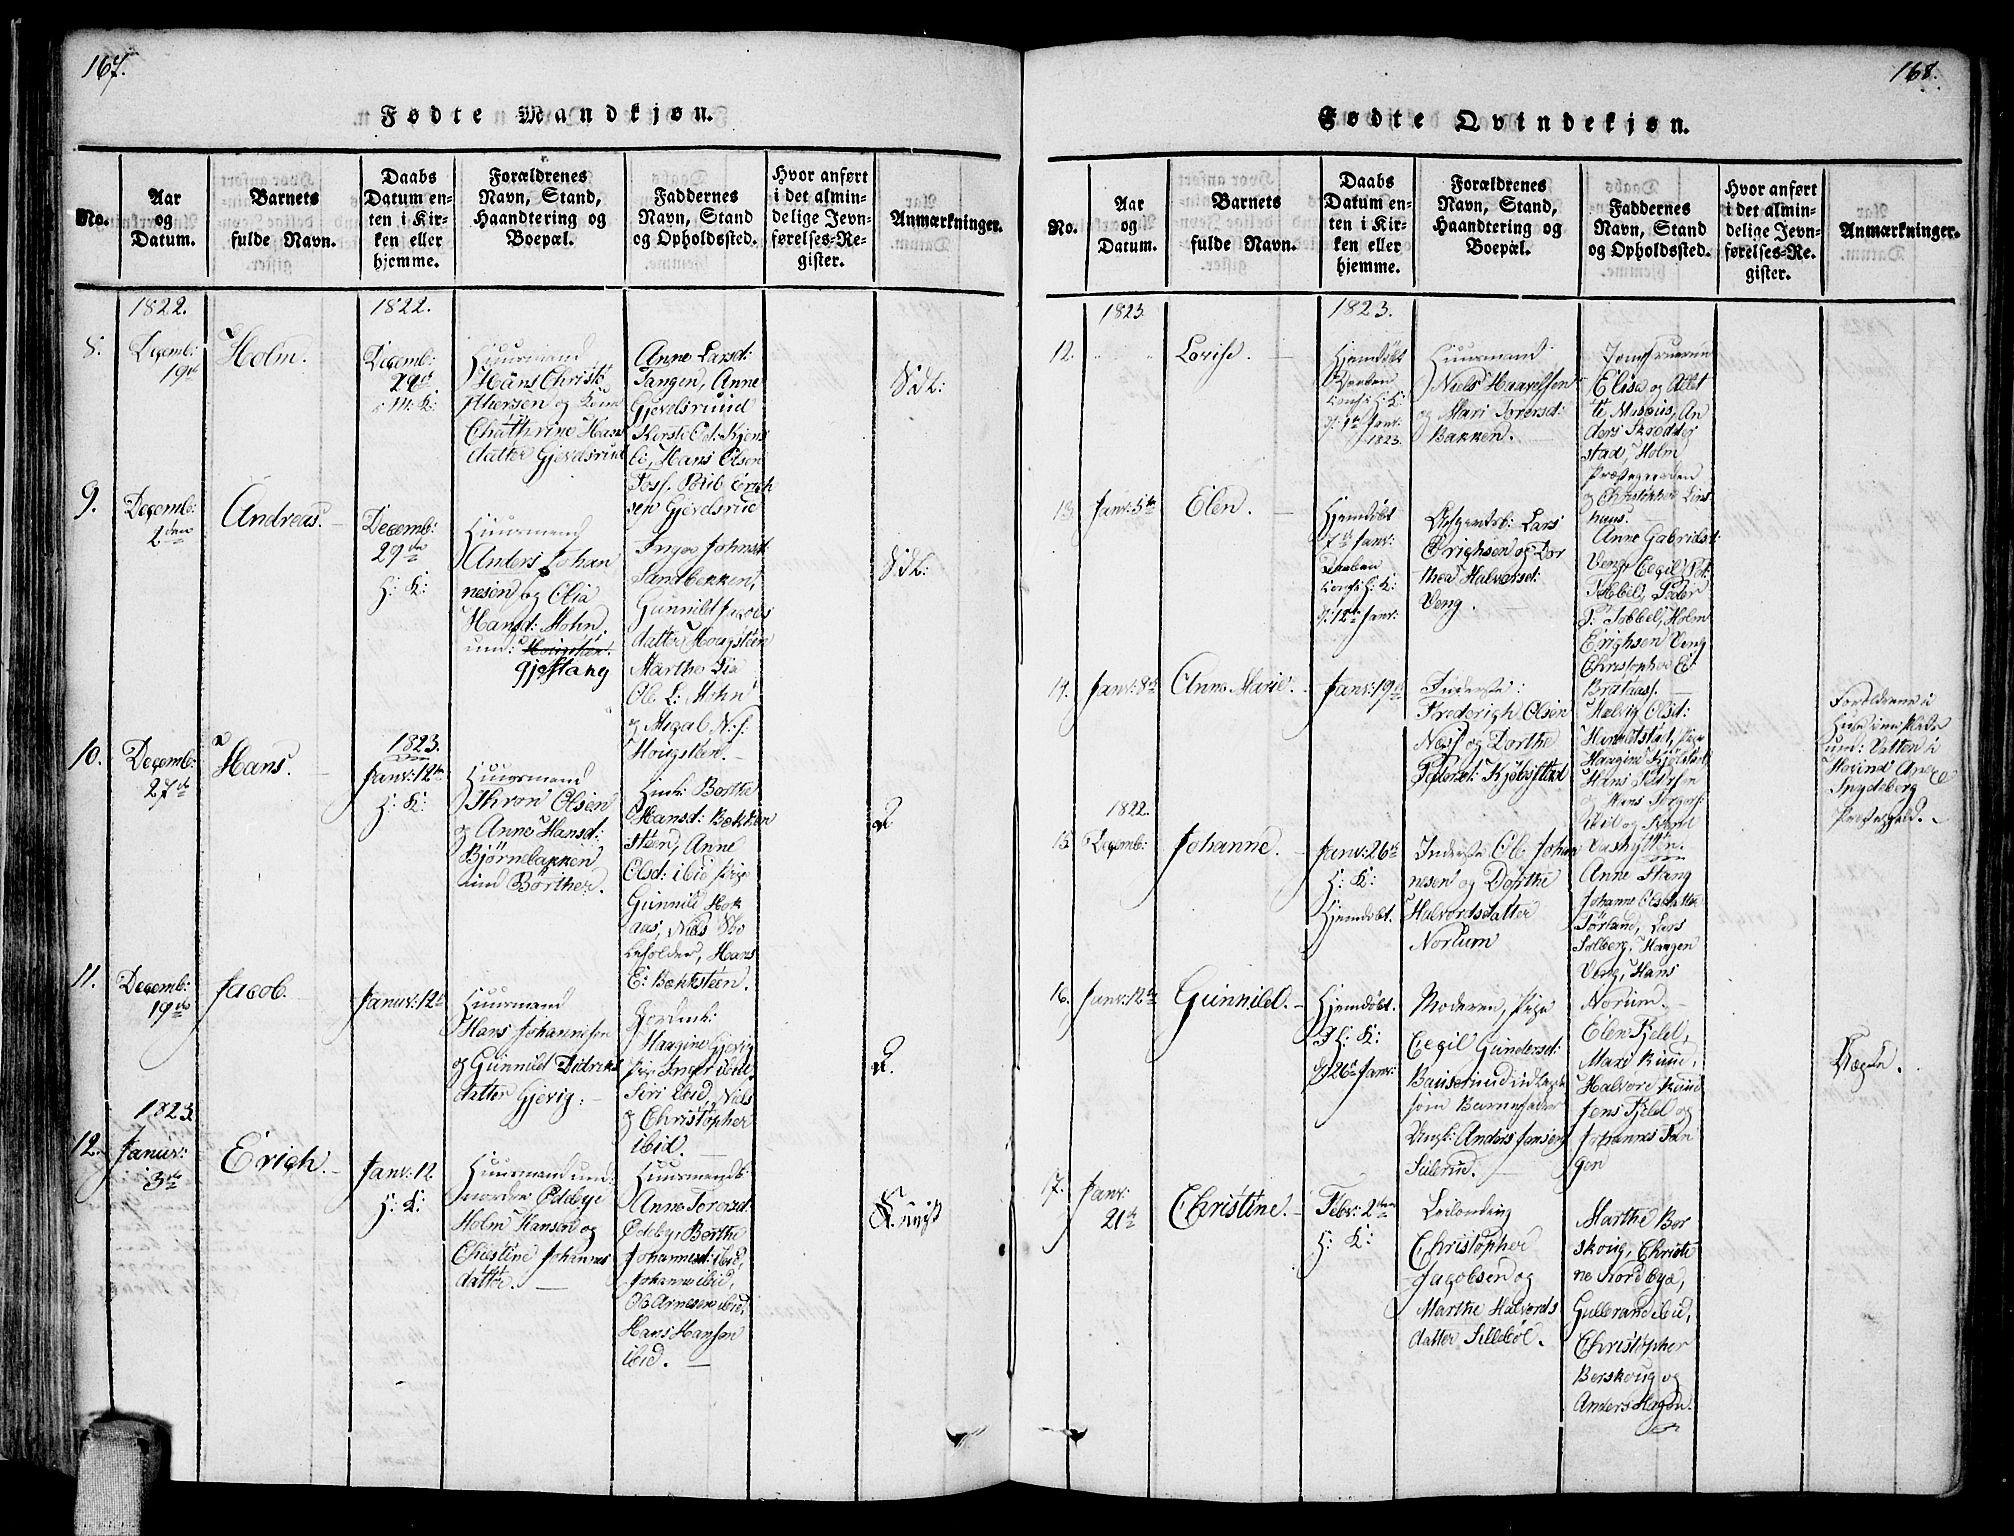 167.
Fødte Mandkjøn.
No.
Aar
og
Datum.
Barnets
fulde Navn.
Daabs
Datum en-
ten i Kir-
ken eller
hjemme.
Forældrenes
Navn, Stand,
Haandtering og
Boepæl.
Faddernes
Navn, Stand
og Opholdssted.
Hvor anført
i det almin-
delige Jevn-
førelses-Re-
gister.
Anmærkninger.
1822.
1822.
8.
Decemb:
19de
Holm.
Decemb:
29de
i M: K:
Huusmand
Hans Christ
phersen og
Chathrine Han
datter Gjerdsrud
Anne Larsd:
Tangen, Anne
Gjerdsruud
Hans Olsen
sen Gjerdsrud
9.
Decemb:
Andreas.
Decemb:
29de
H: K:
Huusmand
Anders Johan
nesen og Olia
Hansd: Mohn
und: Hougsteen.
gjestang
Inger Johnsd:
Sandbekken,
Gunnild Jacobs
datter Hougsteen
Marthe Lia
Ole L: Mohn
og N:s:
Hougsteen.
10.
Decemb:
27de
Hans.
1823.
Janv: 12te
H: K:
Huusmand
Thron Olsen
og Anne Hansd:
Bjørnebakken
und Børther.
Berthe
Hansd: Bekken
steen, Anne
Olsd: ibid Pige
Gunnild Hok
aas, Niels
beholder, Hans
E: Bekksteen.
11.
Decemb:
19de
Jacob.
Januv: 12te
Huusmand
Hans Johannesen
og Gunnild Didriks
datter Gjevig.
Haagine Gjevig
Pige Inger ibid,
Siri ibid, Niels
og Christopher
ibid.
1823.
12.
Januv:
3de
Erich.
Janv: 12.
H: K:
Huusmand und:
Odebye
Holm Hansen og
Christine Johannes
datter.
Huusmands:
Anne Torersd:
Odeby, Berthe
Johannesd: ibid,
Johannes ibid,
Ole Arnesen ibid,
Hans Hansen
ibid.
168.
Fødte Qvindekjøn.
No.
Aar
og
Datum.
Barnets
fulde Navn.
Daabs
Datum en-
ten i Kir-
ken eller
hjemme.
Forældrenes
Navn, Stand,
Haandtering og
Boepæl.
Faddernes
Navn, Stand
og Opholdssted.
Hvor anført
i det almin-
delige Jevn-
førelses-Re-
gister.
Anmærkninger.
1823.
1823.
12.
Lovise.
Hjemdøbt
Daaben
H: K:
1823.
Huusmand
Niels Haavelsen
og Mari Torersd:
Bakken.
Jomfruerne
Elise og Allet
te Musæus, An
ders Skrædder
stad, Holm
Præstegaarden
og Christopher Lins
huus.
13.
Janv: 5te
Elen.
Hjemdøbt
7de Janv:
Daaben
H: K:
12te Janv:
Lars
Erichsen og Dor
thea Halvorsd:
Veng.
Anne Gabrielsd:
Veng, Cegil Ped:
Tobbel, Peder
P: Tobbel, Holm
Erichsen Veng
Christopher E:
Brataas.
14.
Janv: 8de
Anne Marie.
Janv: 19de
Inderste:
Frederich Olsen
Næss og Dorthe
Pedersd: Kjølstad
Helvig Olsd:
Pige
Haagine Kjølstad
Hans Pedersen
Forældrene
Præstegjeld.
1822.
15.
Decemb:
Johanne.
Janv: 26de
H: K:
Hjemdøbt.
Inderste Ole Johan
nesen og Dorthe
Halvordsdatter
Norlum
Anne Stang
Johanne Olsdatter
Tørland, Lars
Solberg, Haagen
Veng, Hans
Norum.
16.
Janv: 12te
Gunnild.
Hjemdøbt
H: K:
26de Janv:
Moderen, Pige
Cegil Gundersd:
Bauserud udlagde
som Barnefader
Ungk: Anders Jensen
Sulerud.
Elen Fjeld,
Mari Ruud,
Halvor Ruud
Jens Fjeld og
Johannes Tan
gen
Uægte.
17.
Janv:
21de
Christine.
Febr: 2den
H: K:
Leilending
Christopher
Jacobsen og
Marthe Halvords
datter Sillebøl.
Marthe Ber
skoug, Christi
ne Nordbye,
Gulbrand ibid,
Christopher
Berskoug og
Anders Hagen.